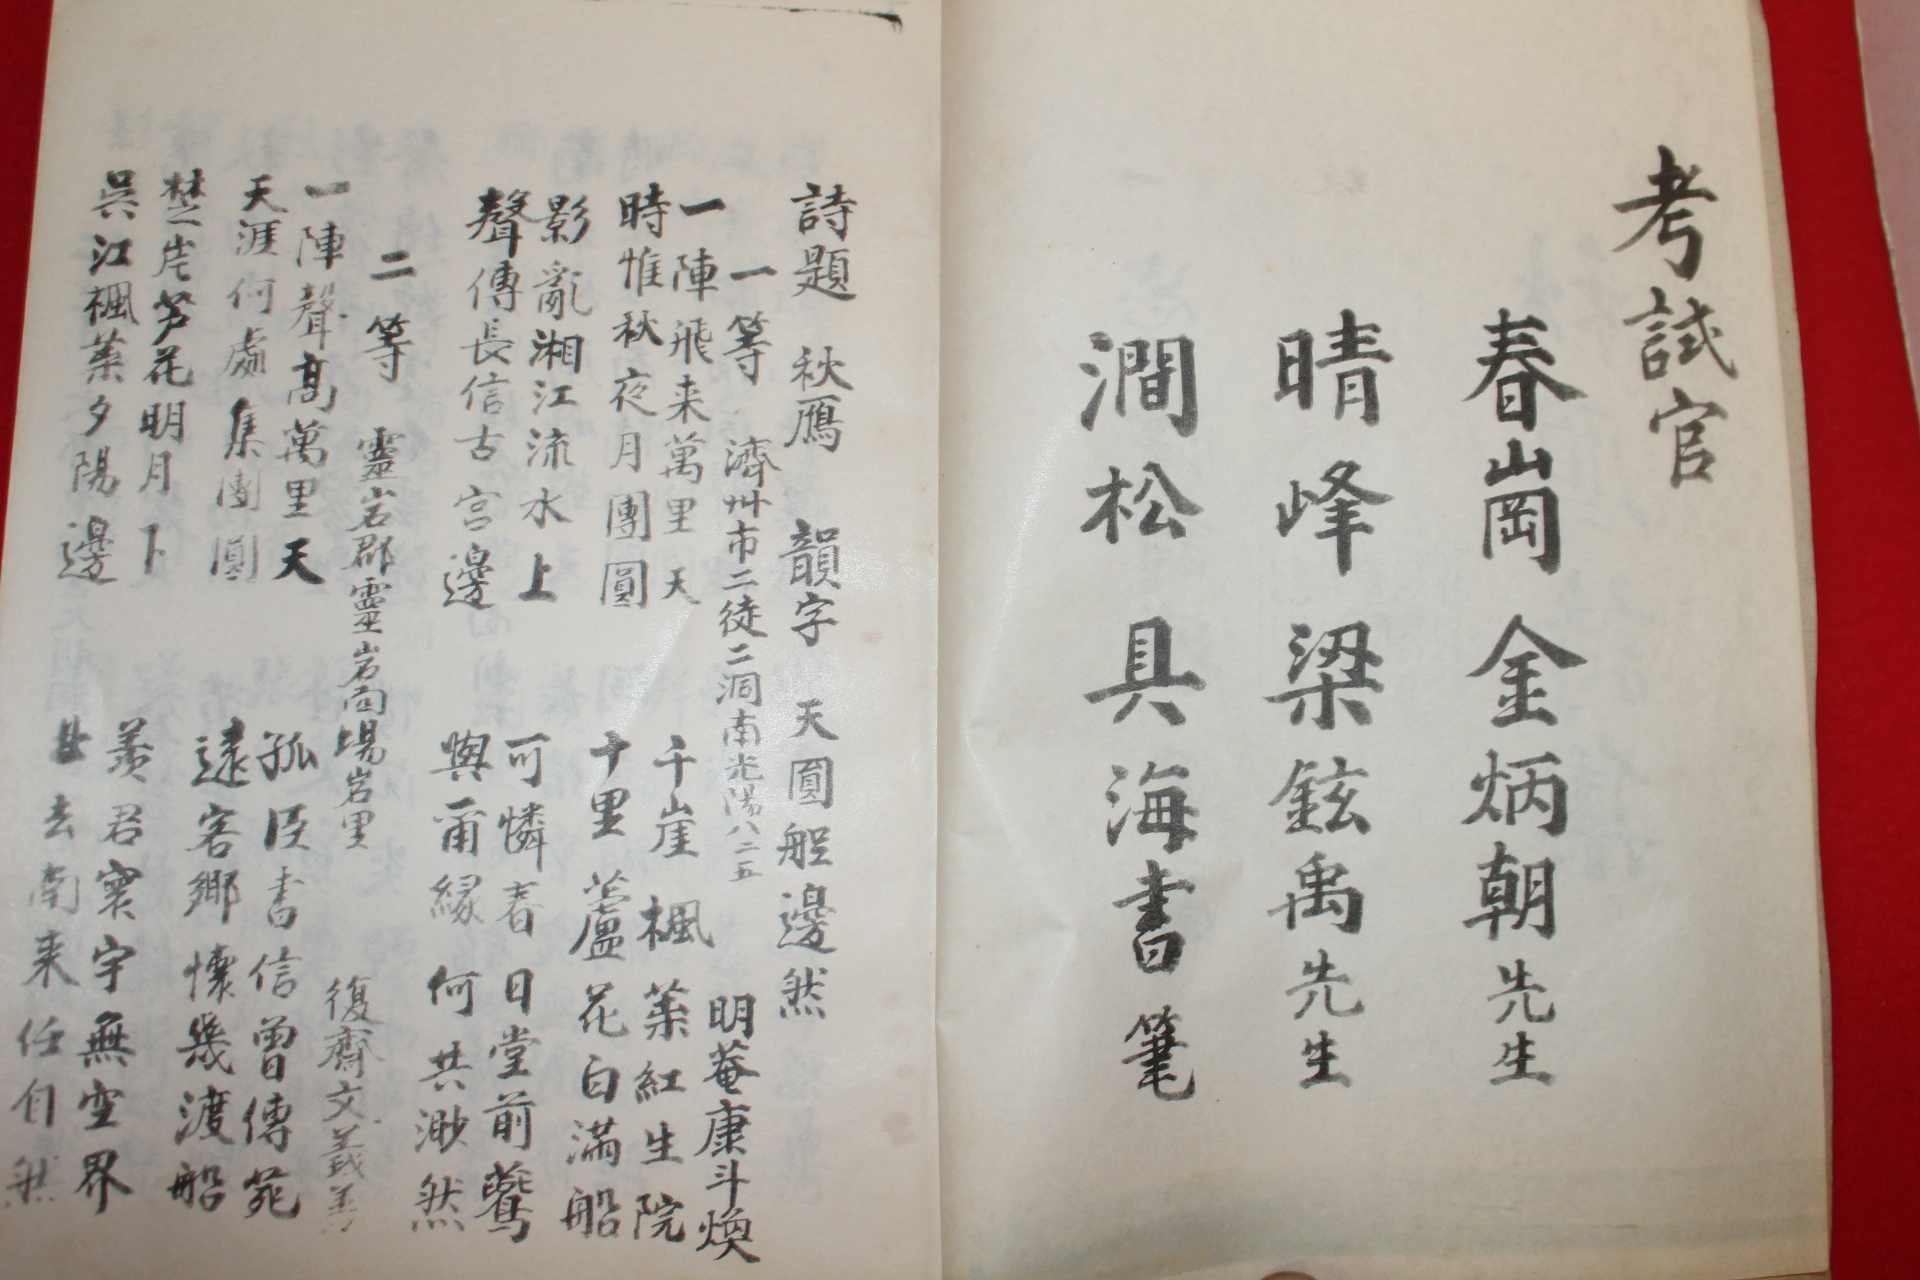 考試官
春崗 金炳朝先生
晴峰 梁鉉禹先生
澗松 具海書 筆
詩題 秋鴈 韻字 天圓船邊然
一等 濟州市二徒二洞南光陽八二五 明菴康斗煥
一陣飛来萬里天 千崖楓葉紅生院
時惟秋夜月團圓 十里蘆花白满船
影亂湘江流水上 可憐春日堂前鷰
聲傳長信古宮邊 與爾緣何共渺然
二等 靈岩郡靈岩面場岩里 復齋文義善
一陣聲高萬里天 孤臣書信曾傳苑
天涯何處集團圓 遠客鄉懷幾渡船
楚岸芦花明月下 羨君寰宇無空界
吳江楓葉夕陽邊 北去南来任自然